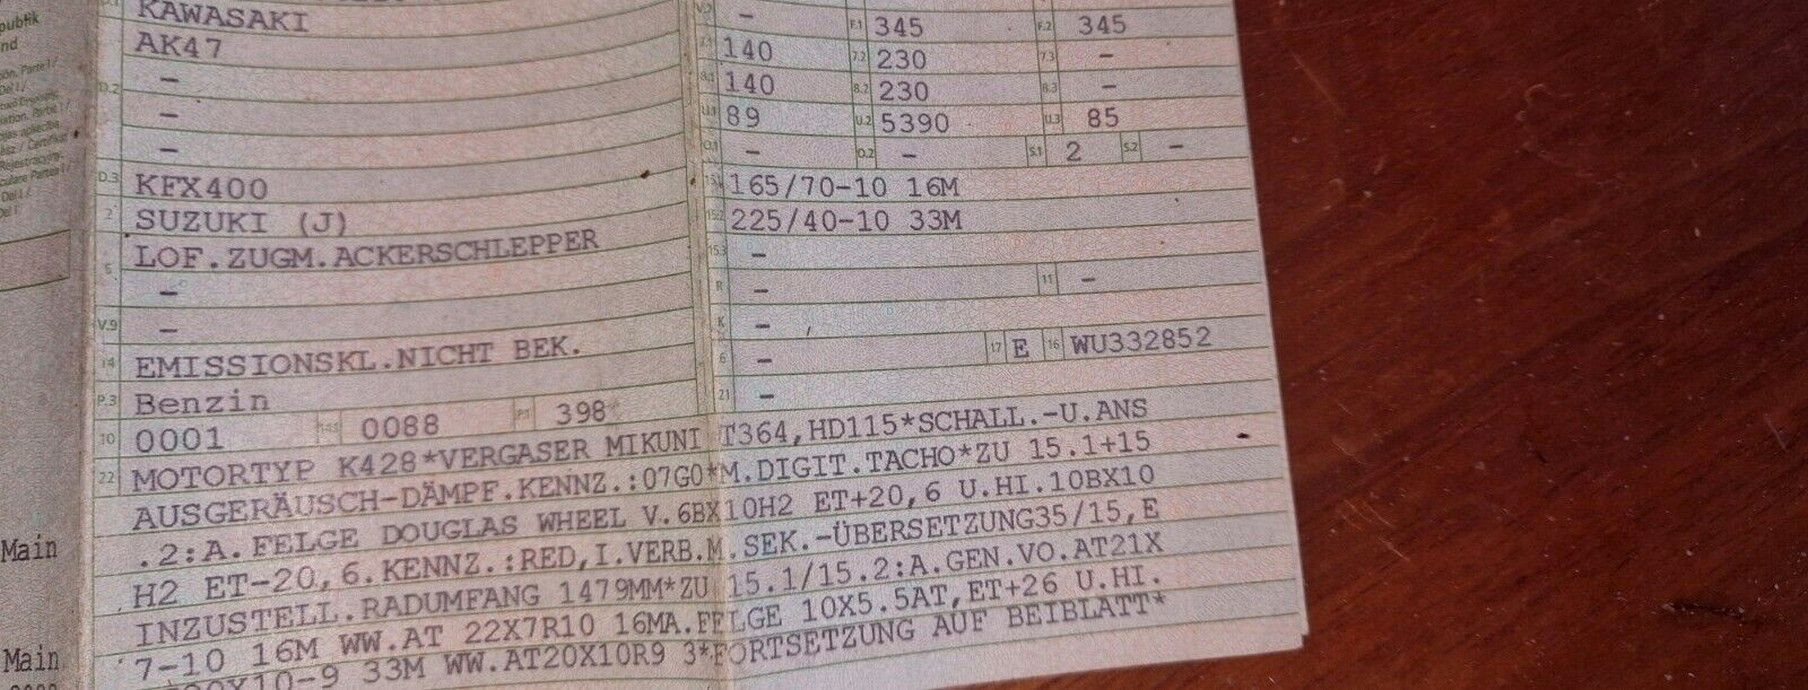 publik
nd
KAWASAKI
V.2 – F.1 345 F.2 345
AK47
7.1 140 7.2 230 7.3 –
D.2 –
8.1 140 8.2 230 8.3 –
–
U.1 89 U.2 5390 U.3 85
–
O.1 – O.2 – S.1 2 S.2 –
D.3 KFX400
165/70-10 16M
2 SUZUKI (J)
225/40-10 33M
5 LOF.ZUGM.ACKERSCHLEPPER
15.3 –
–
R – 11 –
V.9 –
K –
14 EMISSIONSKL.NICHT BEK.
6 – 17 E 16 WU332852
P.3 Benzin
21 –
10 0001 14.1 0088 P.1 398
22 MOTORTYP K428*VERGASER MIKUNI T364,HD115*SCHALL.-U.ANS
AUSGERÄUSCH-DÄMPF.KENNZ.:07G0*M.DIGIT.TACHO*ZU 15.1+15
.2:A.FELGE DOUGLAS WHEEL V.6BX10H2 ET+20,6 U.HI.10BX10
H2 ET-20,6.KENNZ.:RED,I.VERB.M.SEK.-ÜBERSETZUNG35/15,E
INZUSTELL.RADUMFANG 1479MM*ZU 15.1/15.2:A.GEN.VO.AT21X
7-10 16M WW.AT 22X7R10 16MA.FELGE 10X5.5AT,ET+26 U.HI.
X10-9 33M WW.AT20X10R9 3*FORTSETZUNG AUF BEIBLATT*
Main
Main